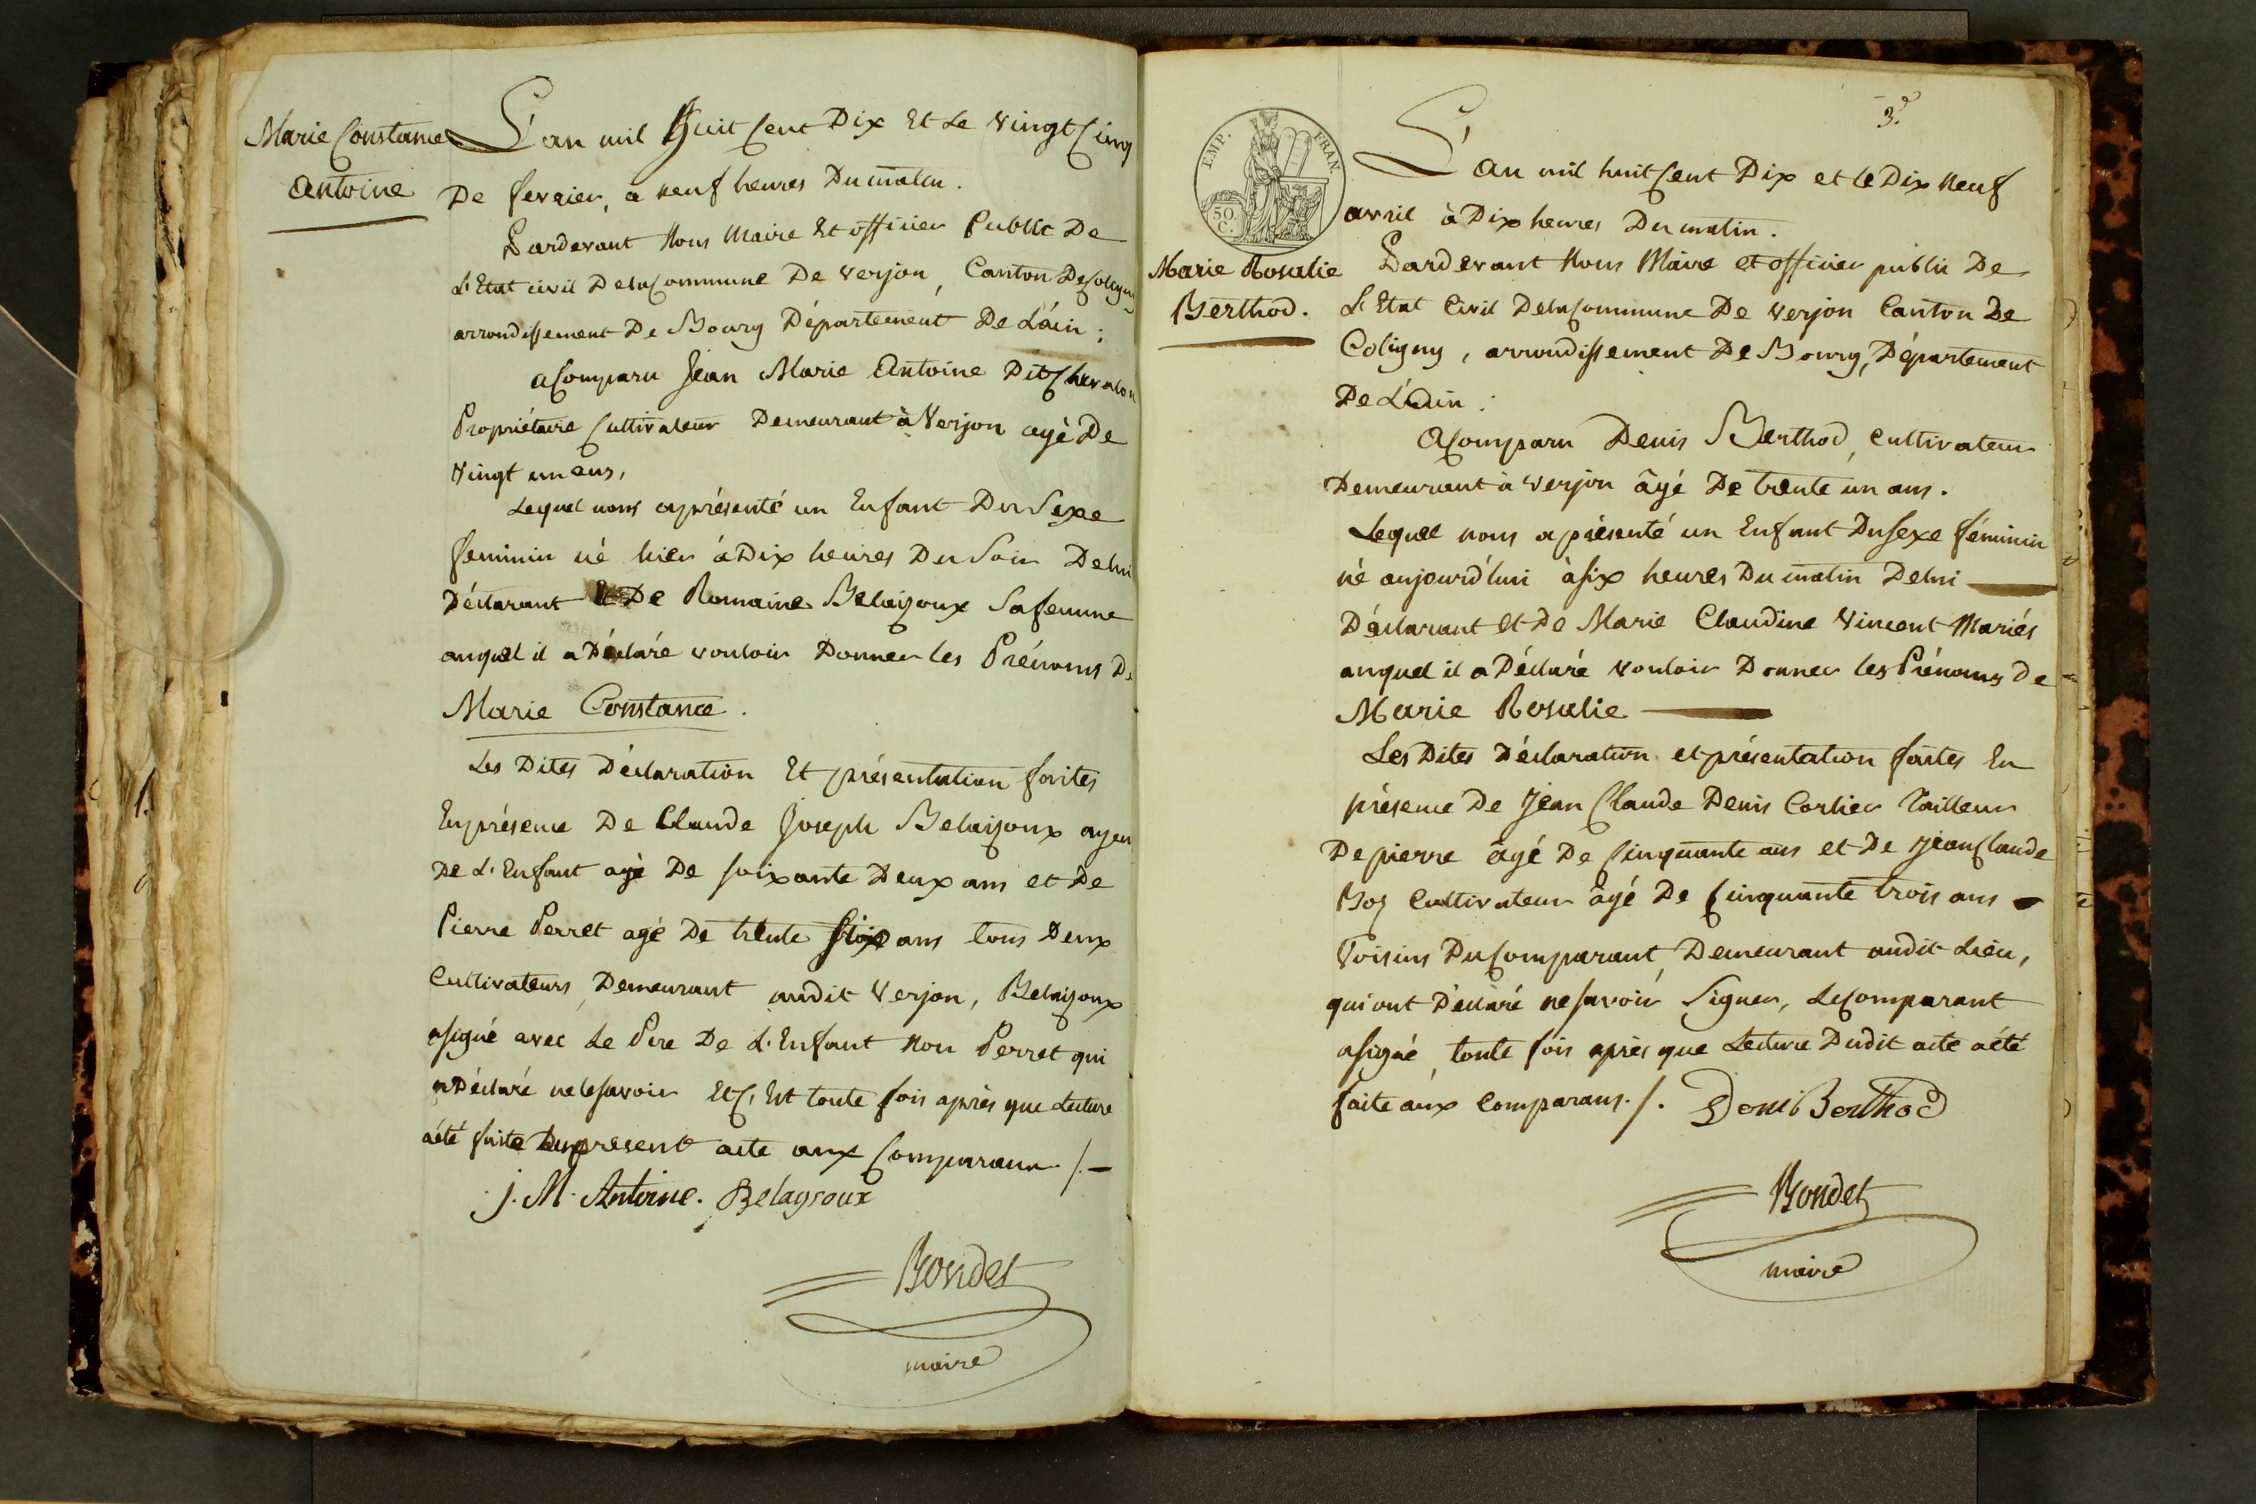 Marie Constance
Antoine
L'an mil huit cent Dix Et Le vingt cinq
De fevrier, a neuf heures Du matin.
Pardevant Nous Maire Et officier Public De
L'Etat civil De la Commune De verjon, Canton De Coligny
arrondissement De Bourg Département De L'ain;
a Comparu Jean Marie Antoine Dit Chevalon
Propriétaire Cultivateur Demeurant à Verjon agé De
vingt un ans,
Lequel nous a présenté un Enfant Du Sexe
feminin né hier à Dix heures Du Soir De lui
Déclarant Et De Romaine Belaizoux Sa femme
auquel il a Déclaré vouloir Donner les Prénoms De
Marie Constance.
Les Dites Déclaration Et présentation faites
En présence De Claude Joseph Belaizoux ayeu
De L'Enfant agé De soixante Deux ans et De
Pierre Perret agé De trente ans tous Deux
Cultivateurs Demeurant audit Verjon, Belaizoux
a signé avec Le Pere De L'Enfant Non Perret qui
a Déclaré ne le savoir Et C'Est toute fois après que Lecture
a été faite Du present acte aux Comparans ./.-
j. M. Antoine. Belaysoux
Bondet
maire
3.e
EMP. FRAN.
50.
C.
L'an mil huit cent Dix et le Dix Neuf
avril à Dix heures Du matin.
Marie Rosalie
Berthod.
Pardevant Nous Maire et officier public De
L'Etat Civil De la Commune De Verjon Canton De
Coligny, arrondissement De Bourg, Département
De L'ain;
A Comparu Denis Berthod, cultivateur
Demeurant à verjon âgé De trente un ans.
Lequel nous a présenté un Enfant Du sexe féminin
né aujourd'hui à six heures Du matin De lui
Déclarant et De Marie Claudine Vincent Mariés
auquel il a Déclaré vouloir Donner les Prénoms De
Marie Rosalie
Les Dites Déclaration et présentation faites En
présence De Jean Claude Denis Corlier Tailleur
De pierre âgé De Cinquante ans et De Jean Claude
Boz Cultivateur âgé De Cinquante trois ans
Voisins Du Comparant Demeurant audit Lieu,
qui ont Déclaré ne savoir Signer, Le Comparant
a signé, toute fois après que Lecture Dudit acte a été
faite aux Comparans ./. Deni Berthod
Bondet
maire